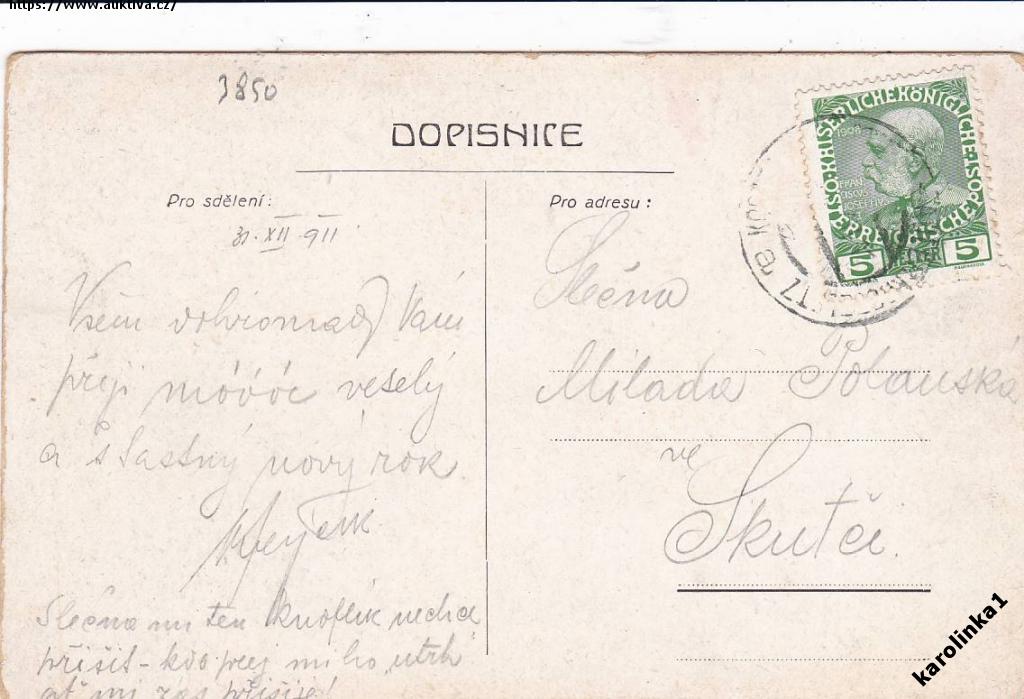 https://www.auktiva.cz/
3850
DOPISNICE
Pro sdělení:
31·XII·911
Všem dohromady Vám
přeji móóóc veselý
a šťastný nový rok.
Slečna mi ten knoflík nechce
přišít - kdo prej mi ho utrh
ať mi
Pro adresu:
Slečna
Milada Polanská
ve
Skutči.
KAISERLICHEKÖNIGLICHE
ÖSTERREICHISCHE POST
1908
5
HELLER
5
karolinka1